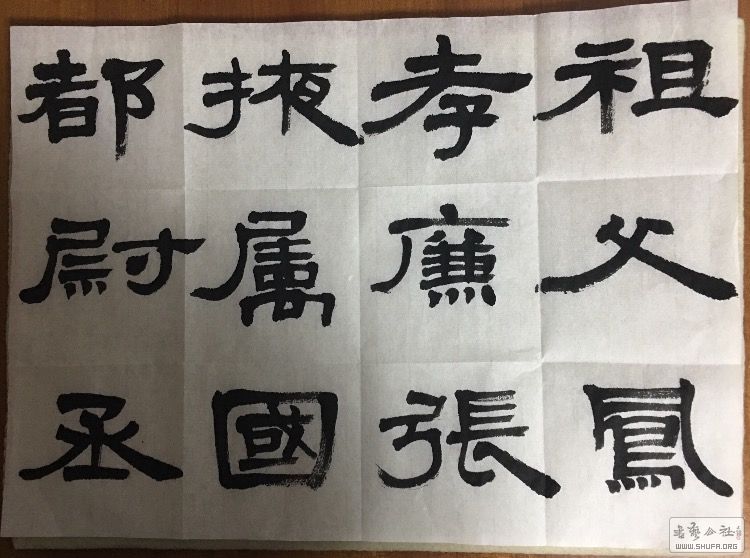 祖父鳳
孝廉張
掖属國
都尉丞
WWW.SHUFA.ORG